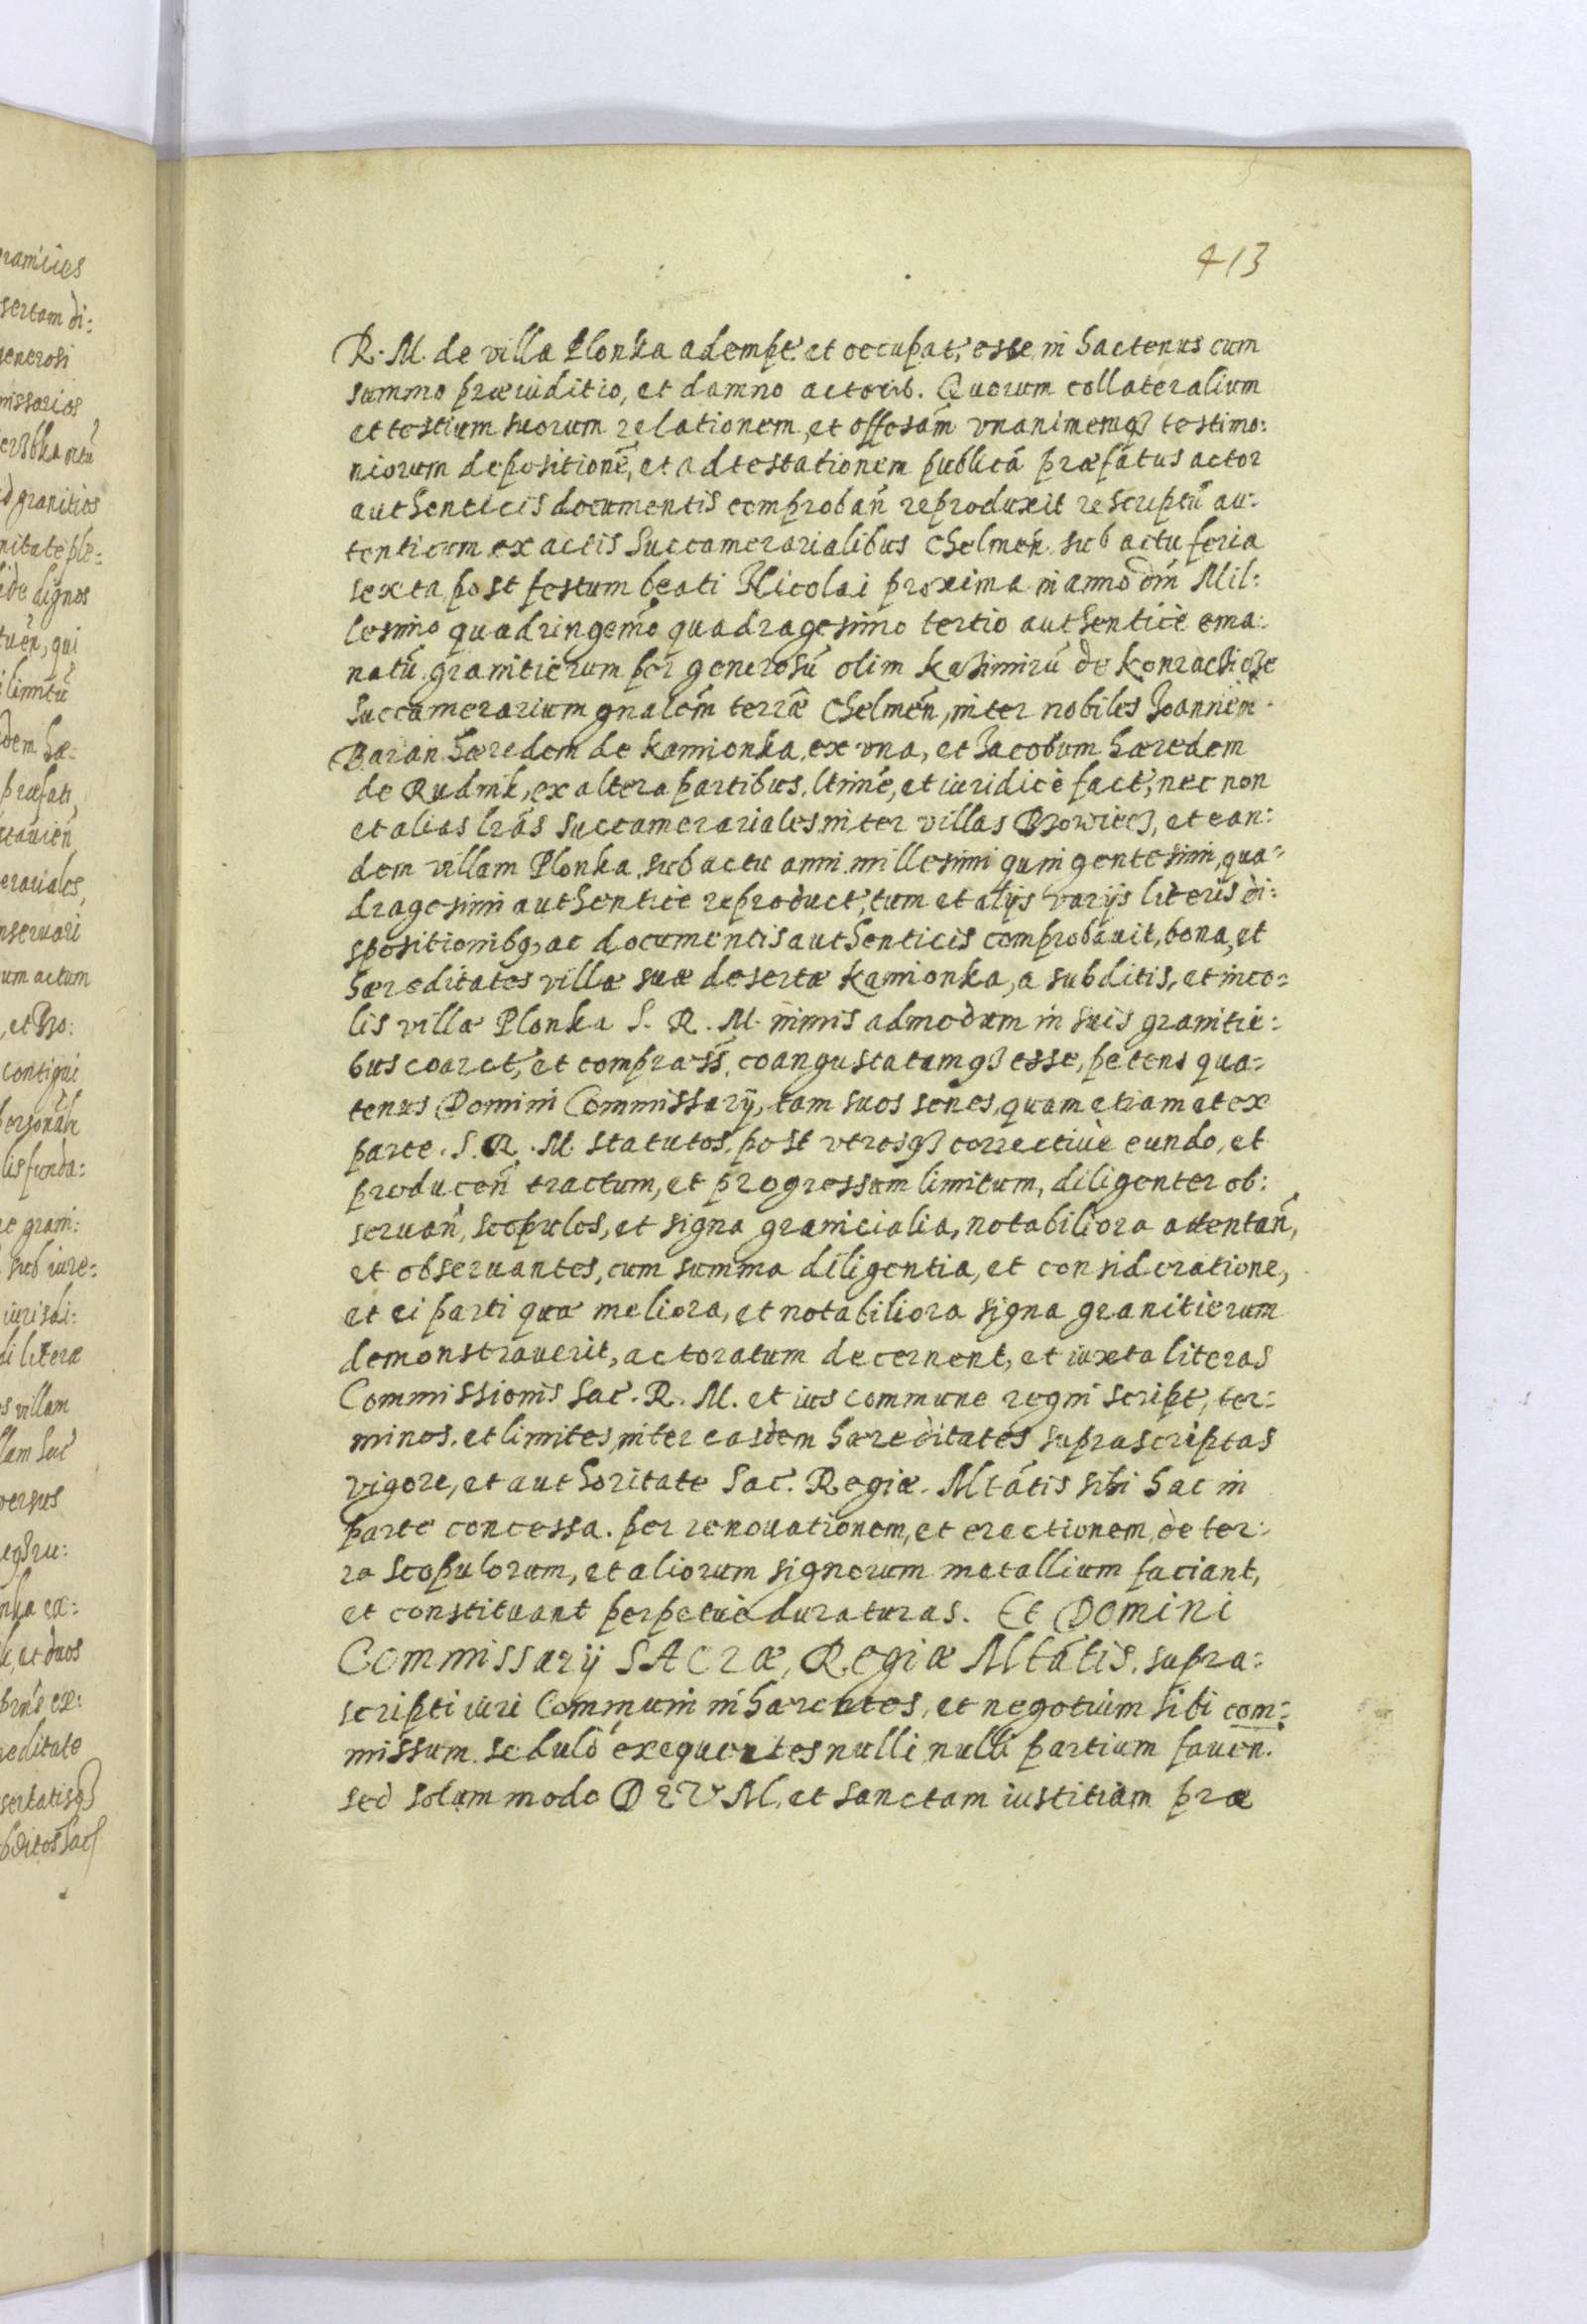 413
R. M. de villa Plonka adempt. et occupat, esse in hactenus cum
summo præiuditio, et damno actorib. Quorum collateralium
et testium suorum relationem, et offesam vnanimemq3 testimo:
niorum depositionē, et adtestationem publicā præfatus actor
authenticis documentis comproban̄ reproduxit rescriptū au:
tenticum ex actis Succamerarialibus Chelmen̄ sub actu feria
sexta post festum beati Nicolai proxima in anno dn̄i Mil:
lesimo quadringem̄o quadragesimo tertio authenticè ema:
natū granitierum per generosū olim Kasimirū de
Succamerarium gnalem̄ terræ Chelmen̄, inter nobiles Joannem
Baran hæredem de Kamionka ex vna, et Jacobum hæredem
de Rudnik, ex altera partibus, ltimē, et iuridicè fact, nec non
et alias lrās succamerariales inter villas Browiec3, et ean:
dem villam Plonka, sub actu anni millesimi quingentesimi, qua:
dragesimi authenticè reproduct, tum et alijs varijs literis di:
spositionibq, ac documentis authenticis comprobauit, bona, et
hæreditates villæ suæ desertæ Kamionka, a subditis, et inco:
lis villæ Plonka S. R. M. nimis admodum in suis granitie:
bus coarct, et compraess, coangustatamq3 esse, petens qua:
tenus Domini Commissarij, tam suos senes, quam etiam et ex
parte S. R. M. statutos, post vtrosq3 correctiuè eundo, et
producen̄ tractum, et progressum limitum, diligenter ob:
seruan̄, scopulos, et signa granicialia, notabiliora attentan̄,
et obseruantes, cum summa diligentia, et consideratione,
et ei parti quæ meliora, et notabiliora signa granitierum
demonstrauerit, actoratum decernent, et iuxta literas
Commissionis Sac. R. M. et ius commune regni script, ter:
minos, et limites, inter easdem hæreditates suprascriptas
vigore, et authoritate Sac. Regiæ. Mtātis sibi hac in
parte concessa. per renouationem, et erectionem, de ter:
ra scopulorum, et aliorum signorum metallium faciant,
et constituant perpetuè duraturas. Et Domini
Commissarij SAcræ, Regiæ Mtātis, supra:
scripti iuri Communi inhærentes, et negotium sibi com:
missum sedulò exequentes nulli nulli partium fauen.
sed solummodo DEVM, et sanctam iustitiam præ